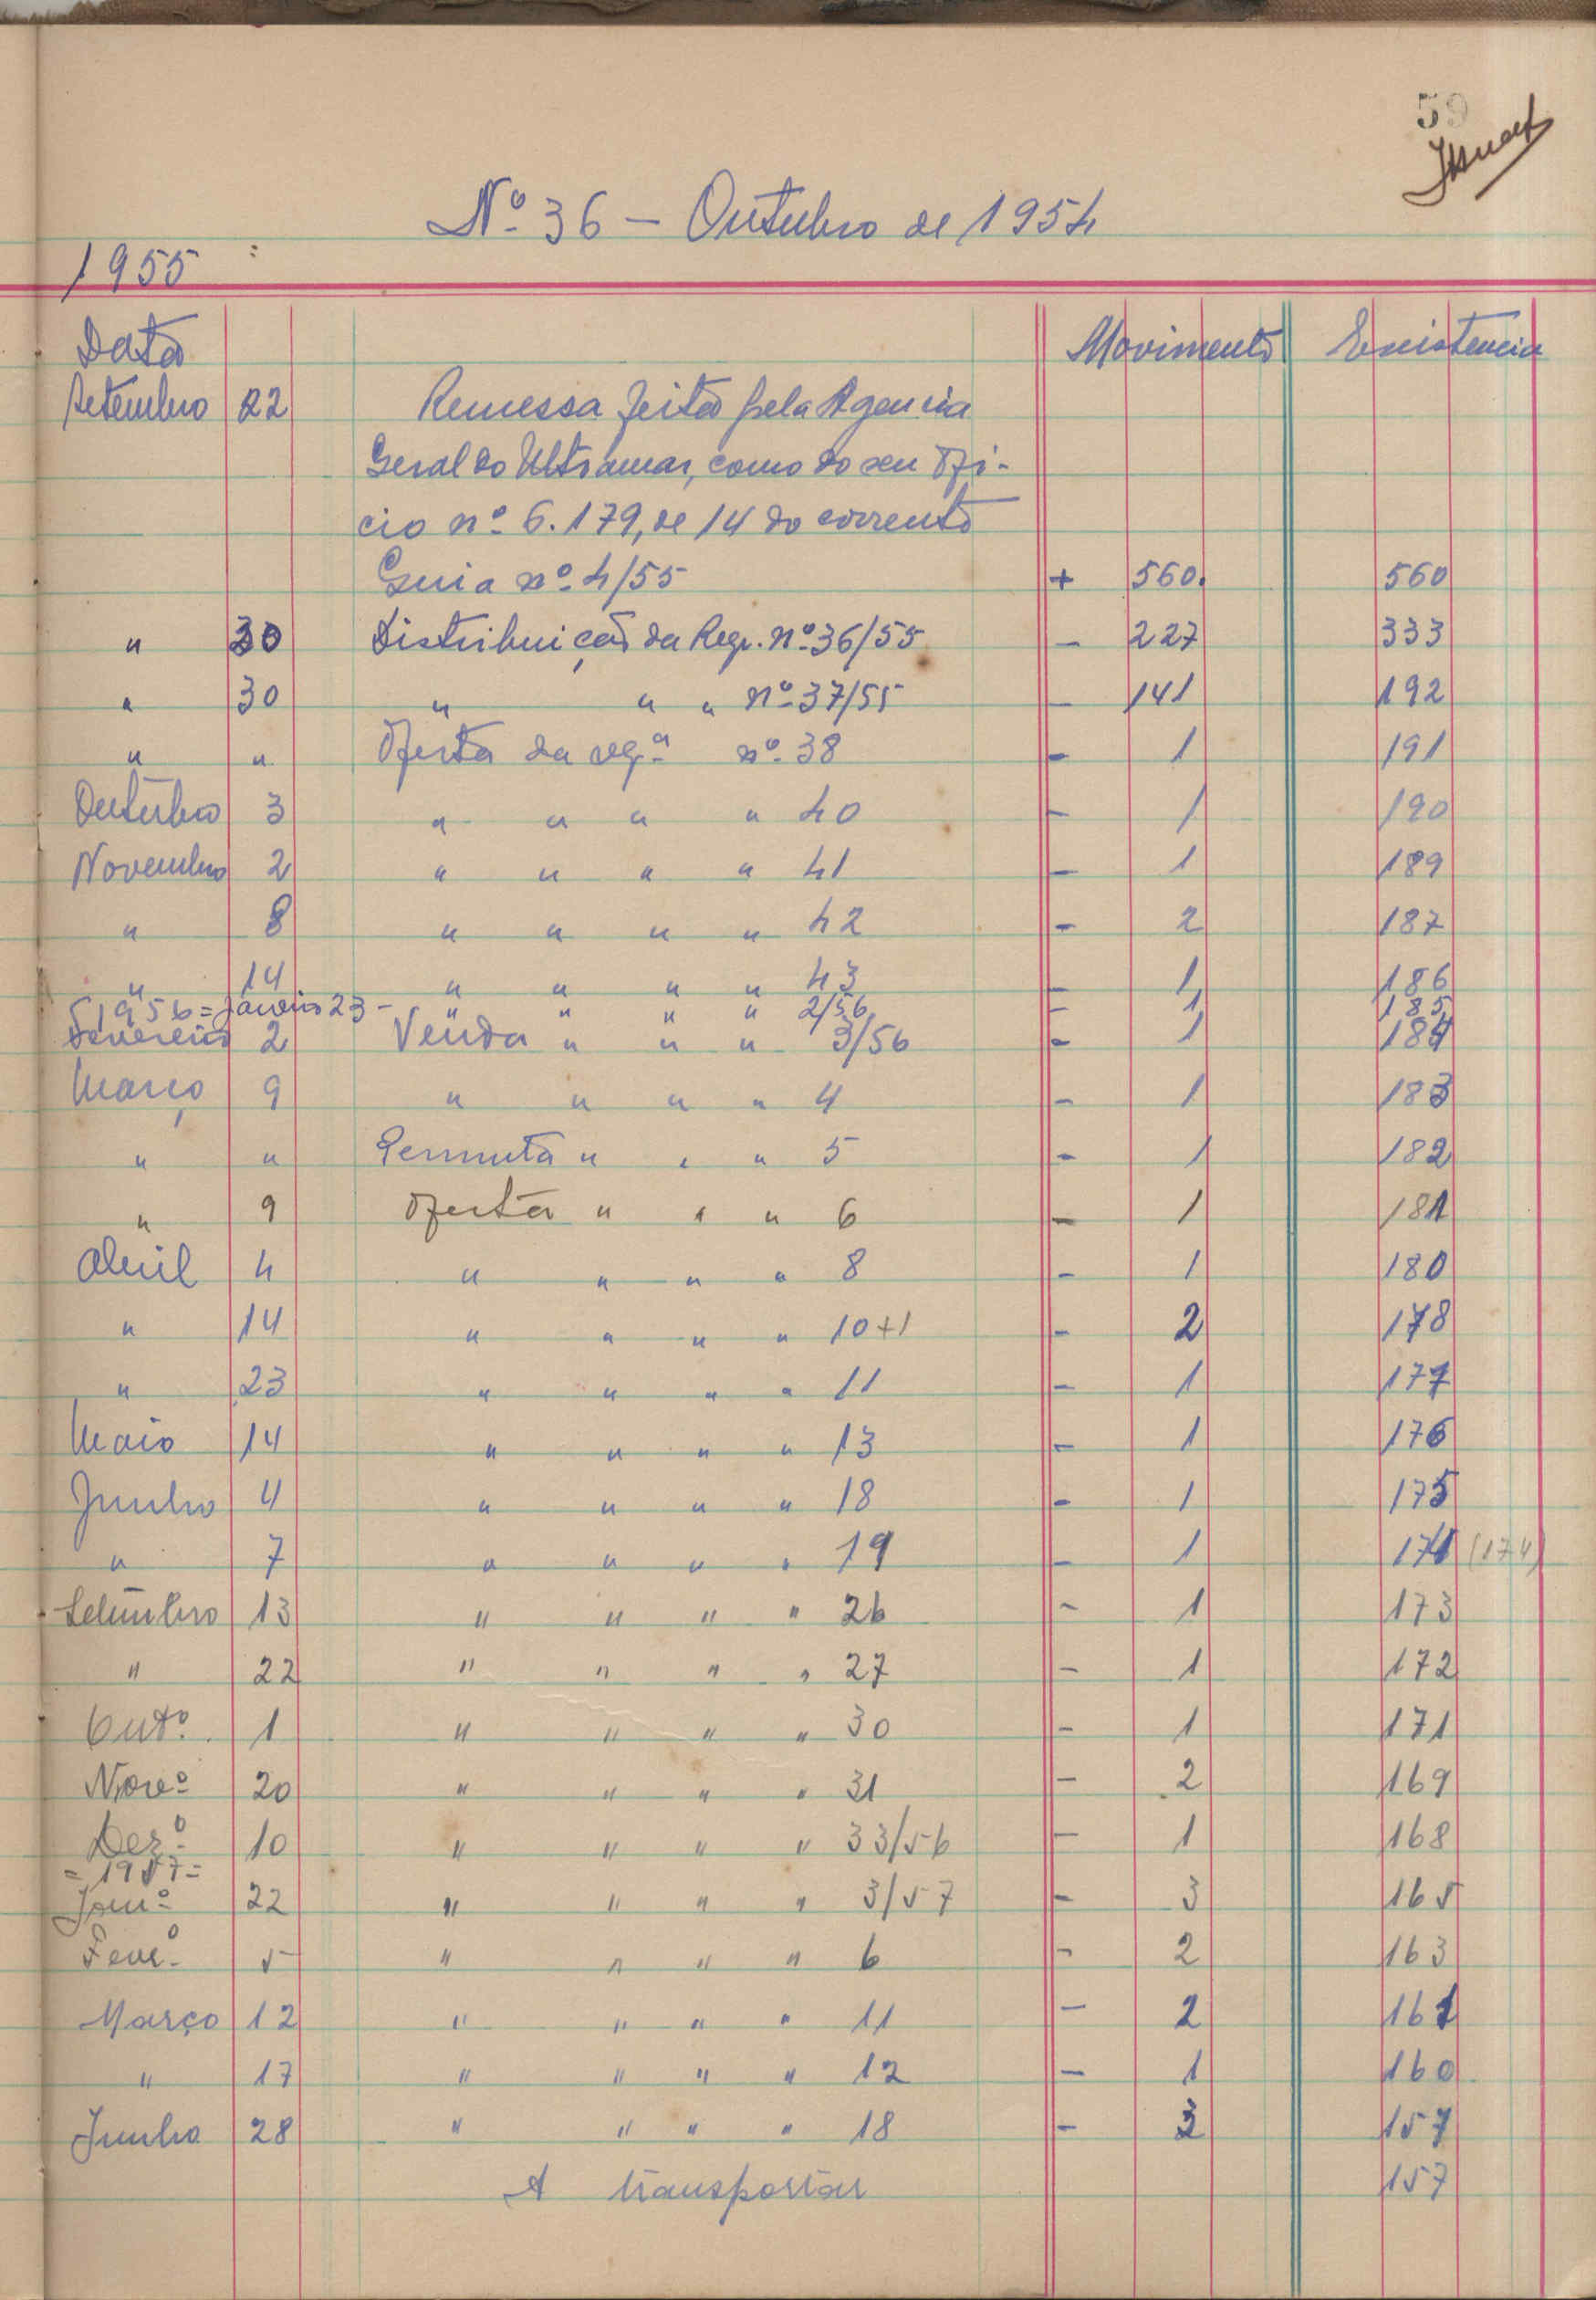 59
Nº 36 - Outubro de 1954
1955
Data Movimento Existencia
Setembro 22 Remessa feita pela Agencia
Geral do Ultramar, como do seu ofi-
cio nº 6.179, de 14 do corrente
Guia nº 4/55 + 560. 560
" 30 Distribuição da Reqº. nº 36/55 - 227 333
" 30 " " " nº 37/55 - 141 192
" " Oferta da reqª nº 38 - 1 191
Outubro 3 " " " " 40 - 1 190
Novembro 2 " " " " 41 - 1 189
" 8 " " " " 42 - 2 187
" 14 " " " " 43 - 1 186
1956 = Janeiro 23 - " " " " 2/56 - 1 185
Fevereiro 2 Venda " " " 3/56 - 1 184
Março 9 " " " " 4 - 1 183
" " Permuta " " " 5 - 1 182
" 9 Oferta " " " 6 - 1 181
Abril 4 " " " " 8 - 1 180
" 14 " " " " 10+1 - 2 178
" 23 " " " " 11 - 1 177
Maio 14 " " " " 13 - 1 176
Junho 4 " " " " 18 - 1 175
" 7 " " " " 19 - 1 174 (174)
Setembro 13 " " " " 26 - 1 173
" 22 " " " " 27 - 1 172
Outº. 1 " " " " 30 - 1 171
Novº 20 " " " " 31 - 2 169
Dezº 10 " " " " 33/56 - 1 168
= 1957 =
Janº 22 " " " " 3/57 - 3 165
Fevº 5 " " " " 6 - 2 163
Março 12 " " " " 11 - 2 161
" 17 " " " " 12 - 1 160
Junho 28 " " " " 18 - 3 157
A transportar 157